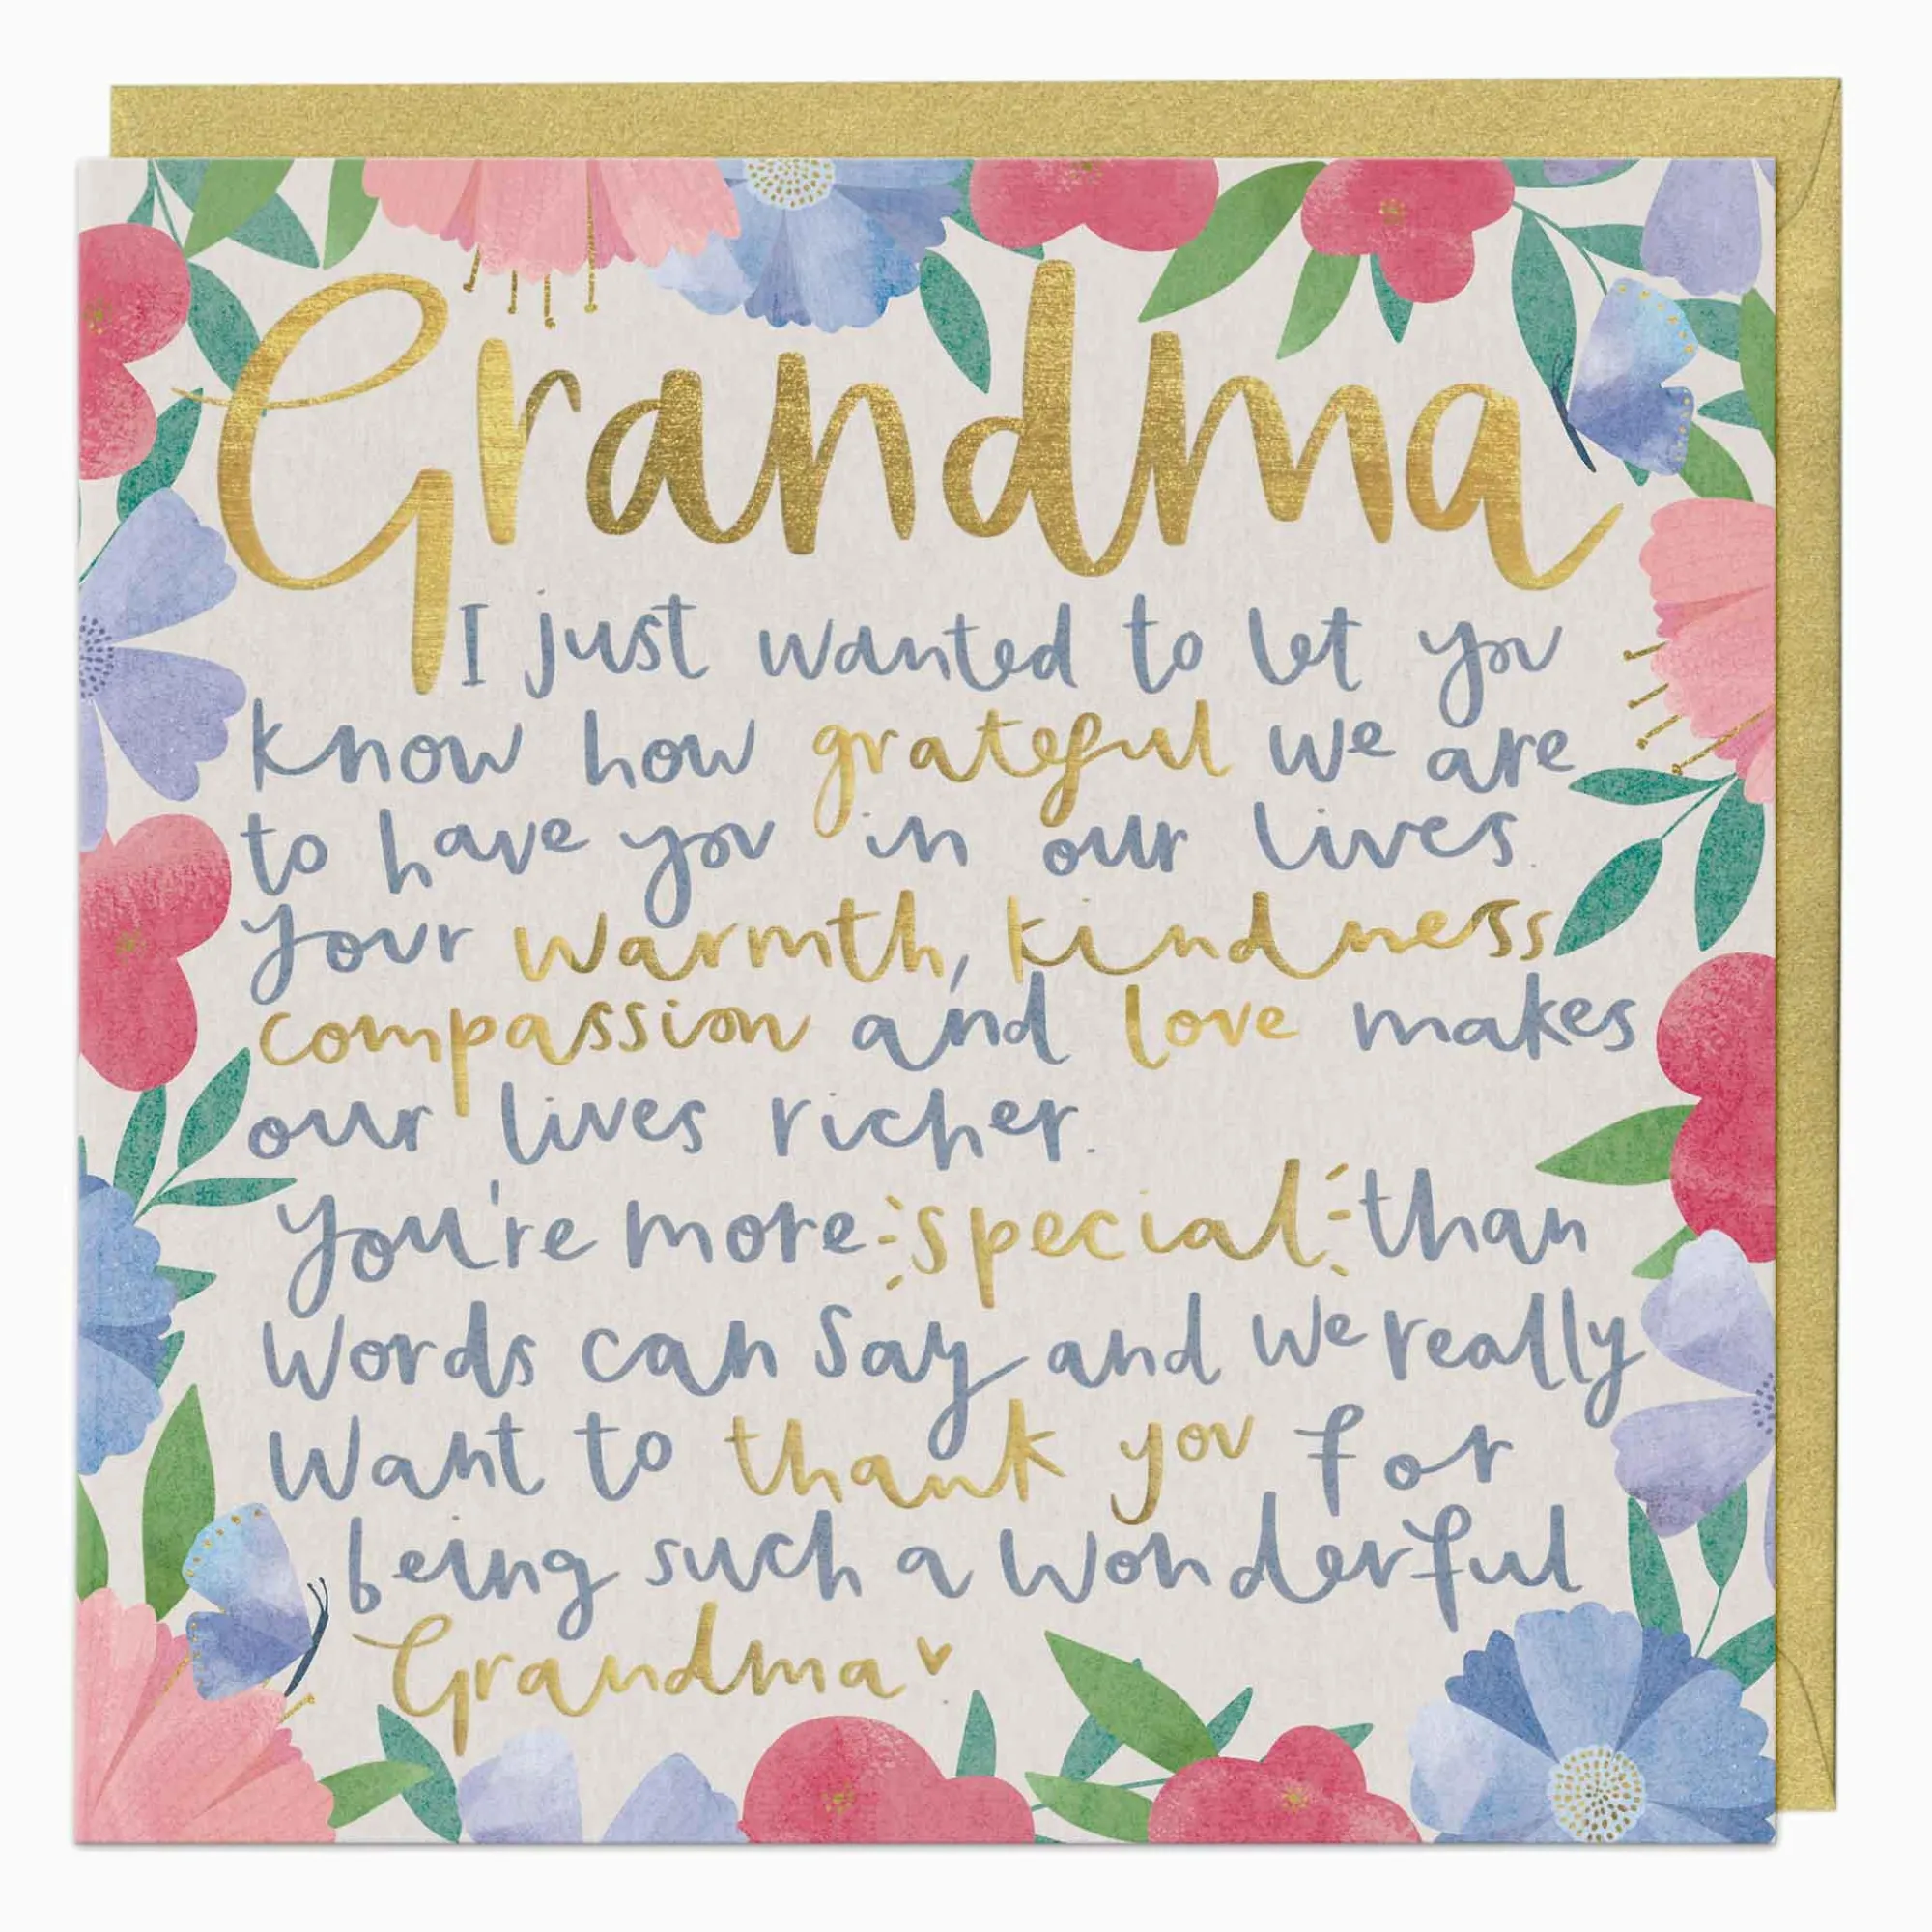 Grandma
I just wanted to let you
know how grateful we are
to have you in our lives.
Your warmth, kindness
compassion and love makes
our lives richer.
You're more special than
words can say and we really
want to thank you for
being such a wonderful
Grandma